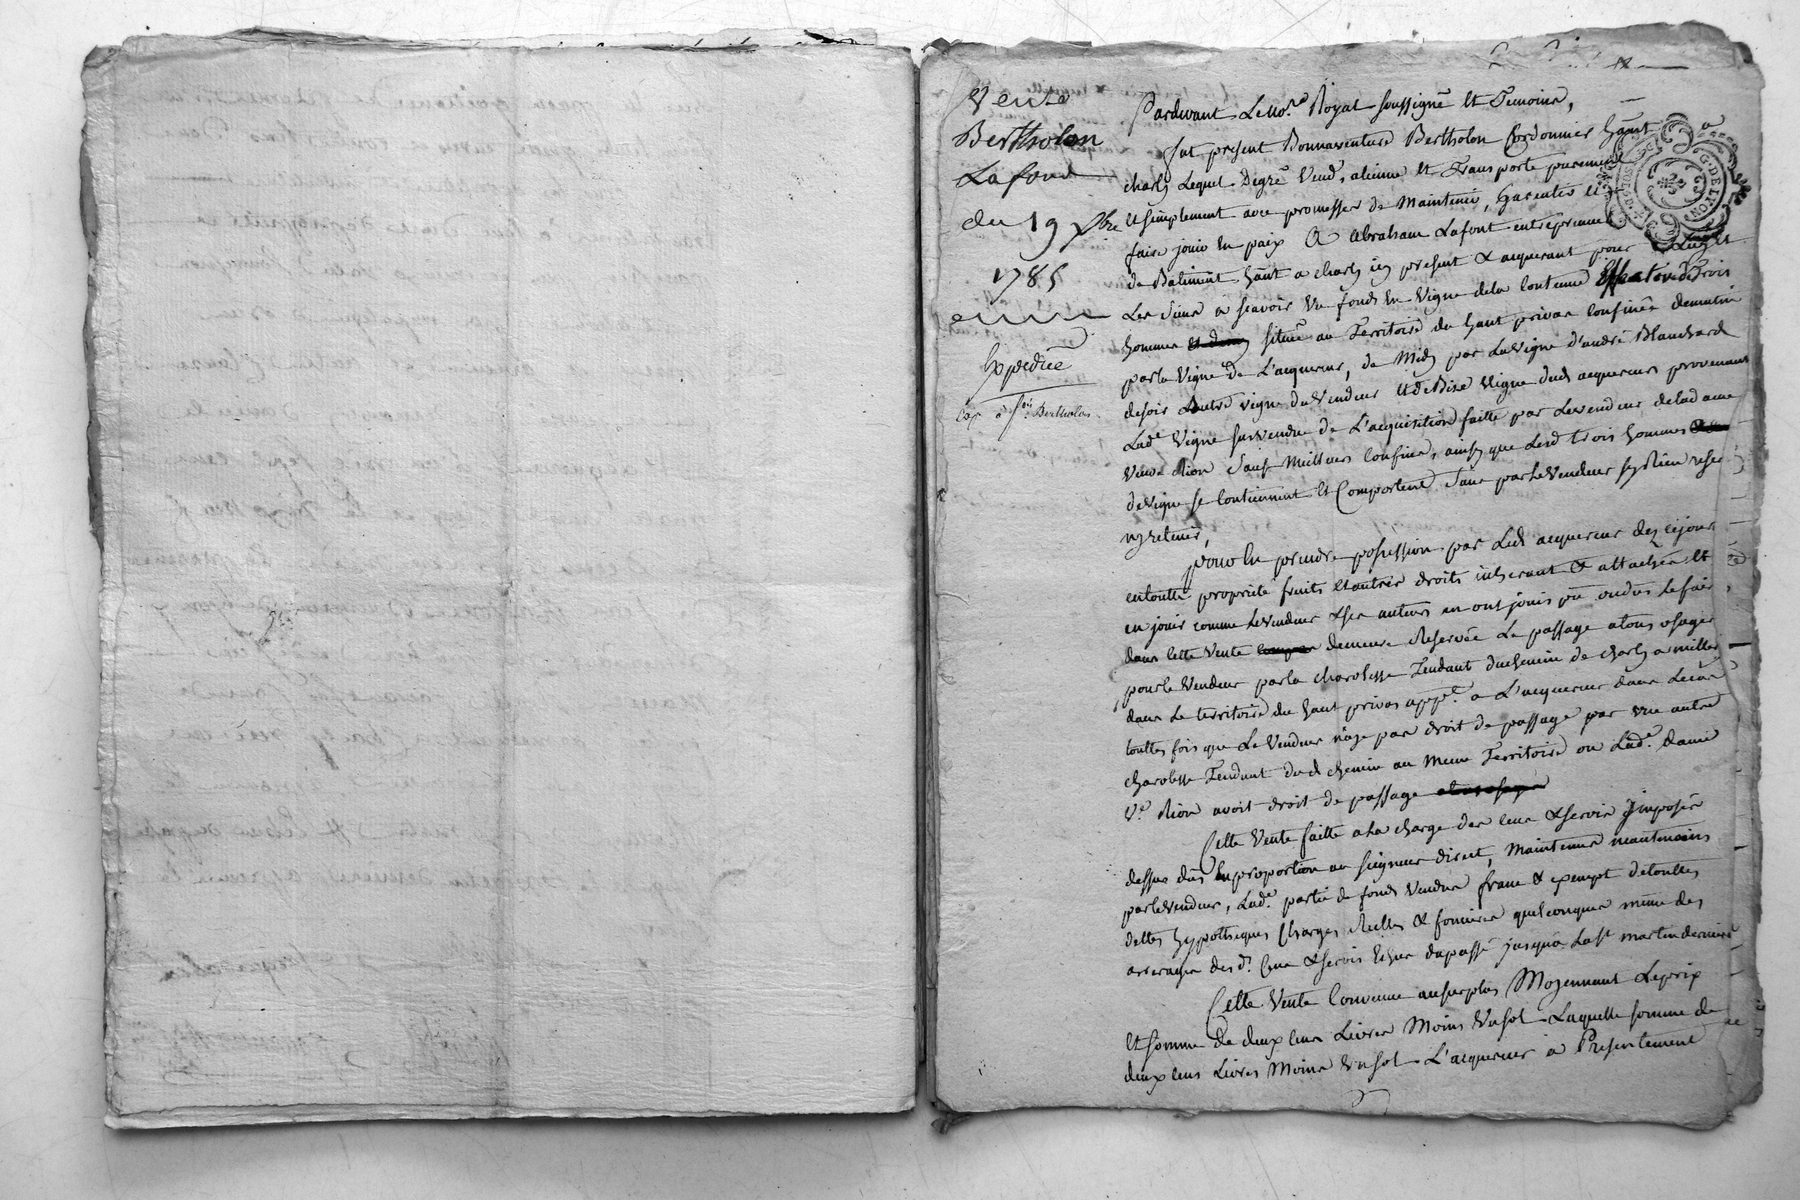 Vente
Bertholon
Lafont
du 19 Xbre
1785
Expediée
Pardevant Le no.re Royal soussigné Et Temoins,
fut présent Bonnaventure Bertholon Cordonnier ha͠nt
charly Lequel Degré Vend, alienne Et Transporte purement
Et simplement avec promesses de Maintenir, Garentir Et
faire jouir En paix A abraham Lafont entrepreneur
de Batiment ha͠nt a charly icy présent & acquerant pour Luy Et
Les Siens a scavoir Un fonds En Vigne dela Contenue Effective de Trois
hommes situé au Territoire du haut privas Confinée de matin
par la Vigne De L'acquereur, de Midy par La Vigne d'andré Blanchard
de soir Autre vigne du Vendeur Et de Bize Vigne dud acquereur provenant
Lad.e Vigne sus vendue de L'acquisition faitte par Le vendeur de lad dame
Veuve Rion Sauf Meilleurs Confins, ainsy que Lesd trois hommes
de vigne se Contiennent Et Comportent Sans par Le Vendeur sy Rien reser
ny retenir,
pour En prendre possession par Led acquereur dez ce jour
en toutte proprieté fruits Et autres droits inherant & attachés Et
en jouir comme Le vendeur & ses auteurs en ont jouis pû ou dus Le faire,
dans Cette Vente demeure Reservée Le passage a tous usages
pour le Vendeur par la charolesse Tendant du chemin de charly a millery
dans Le territoire du haut privas app.t a L'acquereur dans Le cas
touttes fois que Le Vendeur n'aye pas droit de passage par une autre
charolesse Tendant dud chemin au Meme Territoire ou Lad.e dame
V.e Rion avoit droit de passage
Cette Vente faitte a La charge des Cens & servis Imposés
dessus dûs En proportion au seigneur direct, Maintenue neantmoins
par Le vendeur, Lad.e partie de fonds Vendue franc & exempt de touttes
dettes hypotheques Charges Réelles & foncieres quelconques même des
arrerages desd. Cens & servis Echus du passé jusqu'a La st martin derniere
Cette Vente Convenue au surplus Moyennant Le prix
Et somme De deux Cens Livres Moins Un sol Laquelle somme de
deux Cens Livres Moins Un sol L'acquereur a Présentement